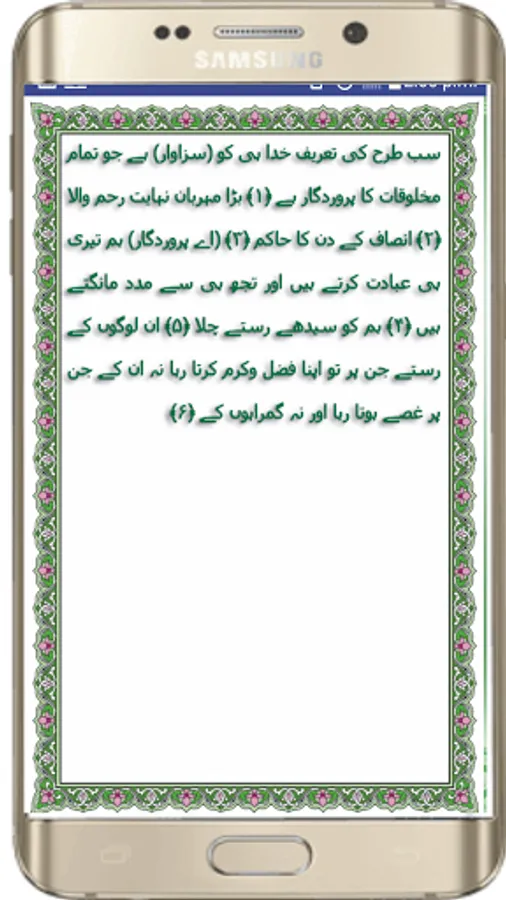 SAMSUNG
سب طرح کی تعریف خدا ہی کو (سزاوار) ہے جو تمام
مخلوقات کا پروردگار ہے ﴿۱﴾ بڑا مہربان نہایت رحم والا
﴿۲﴾ انصاف کے دن کا حاکم ﴿۳﴾ (اے پروردگار) ہم تیری
ہی عبادت کرتے ہیں اور تجھ ہی سے مدد مانگتے
ہیں ﴿۴﴾ ہم کو سیدھے رستے چلا ﴿۵﴾ ان لوگوں کے
رستے جن پر تو اپنا فضل وکرم کرتا رہا نہ ان کے جن
پر غصے ہوتا رہا اور نہ گمراہوں کے ﴿۶﴾